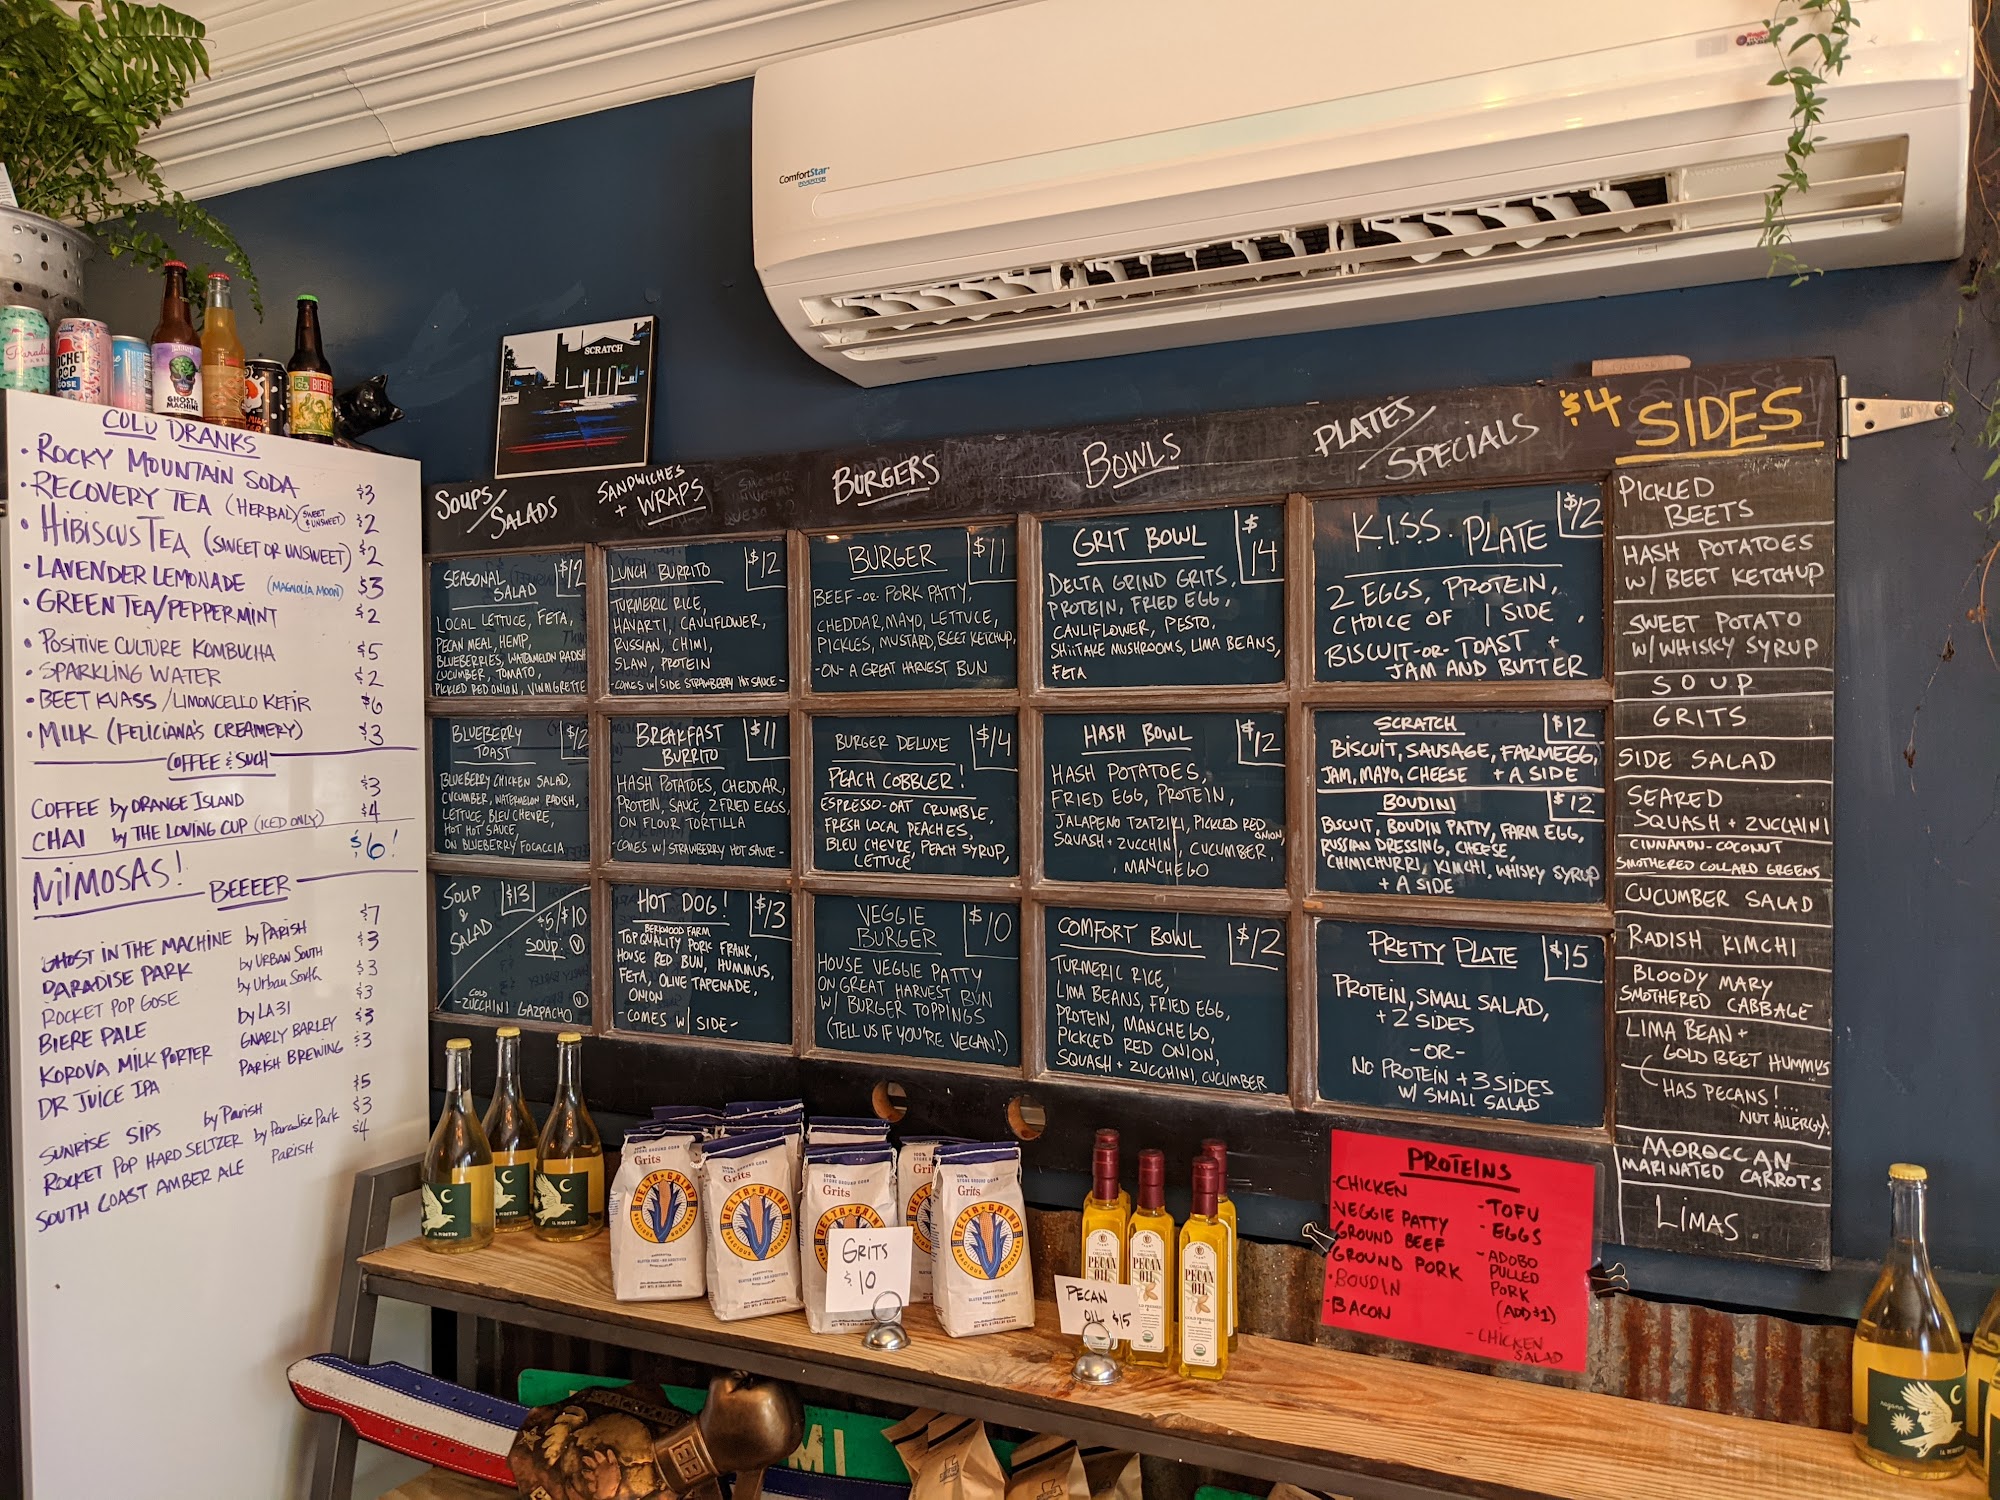 COLD DRANKS
• ROCKY MOUNTAIN SODA $3
• RECOVERY TEA (HERBAL) (SWEET & UNSWEET) $2
• HIBISCUS TEA (SWEET OR UNSWEET) $2
• LAVENDER LEMONADE (MAGNOLIA MOON) $3
• GREEN TEA/PEPPERMINT $2
• POSITIVE CULTURE KOMBUCHA $5
• SPARKLING WATER $2
• BEET KVASS/LIMONCELLO KEFIR $6
• MILK (FELICIANA'S CREAMERY) $3
COFFEE & SUCH
COFFEE by ORANGE ISLAND $3
CHAI by THE LOVING CUP (ICED ONLY) $4
MIMOSAS! $6!
BEEEER
GHOST IN THE MACHINE by PARISH $7
PARADISE PARK by URBAN SOUTH $3
ROCKET POP GOSE by Urban South $3
BIERE PALE by LA31 $3
KOROVA MILK PORTER GNARLY BARLEY $3
DR JUICE IPA PARISH BREWING $3
SUNRISE SIPS by Parish $5
ROCKET POP HARD SELTZER by Paradise Park $3
SOUTH COAST AMBER ALE PARISH $4
SCRATCH
ComfortStar
INVERTER
ROCKET
POP
GOSE
GHOST IN THE
MACHINE
BIERE
SOUPS/
SALADS
SEASONAL
SALAD $12
LOCAL LETTUCE, FETA,
PECAN MEAL, HEMP,
BLUEBERRIES, WATERMELON RADISH
CUCUMBER, TOMATO,
PICKLED RED ONION, VINAIGRETTE
BLUEBERRY
TOAST $12
BLUEBERRY CHICKEN SALAD,
CUCUMBER, WATERMELON RADISH,
LETTUCE, BLEU CHEVRE,
HOT HOT SAUCE,
ON BLUEBERRY FOCACCIA
SOUP
&
SALAD $13
$5/$10
SOUP: V
COLD
-ZUCCHINI GAZPACHO V
SANDWICHES
+ WRAPS
LUNCH BURRITO $12
TURMERIC RICE,
HAVARTI, CAULIFLOWER,
RUSSIAN, CHIMI,
SLAW, PROTEIN
-COMES W/ SIDE STRAWBERRY HOT SAUCE-
BREAKFAST
BURRITO $11
HASH POTATOES, CHEDDAR,
PROTEIN, SAUCE, 2 FRIED EGGS,
ON FLOUR TORTILLA
-COMES W/ STRAWBERRY HOT SAUCE-
HOT DOG! $13
BERKWOOD FARM
TOP QUALITY PORK FRANK,
HOUSE RED BUN, HUMMUS,
FETA, OLIVE TAPENADE,
ONION
-COMES W/ SIDE-
BURGERS
BURGER $11
BEEF -OR- PORK PATTY,
CHEDDAR, MAYO, LETTUCE,
PICKLES, MUSTARD, BEET KETCHUP,
-ON- A GREAT HARVEST BUN
BURGER DELUXE $14
PEACH COBBLER!
ESPRESSO-OAT CRUMBLE,
FRESH LOCAL PEACHES,
BLEU CHEVRE, PEACH SYRUP,
LETTUCE
VEGGIE
BURGER $10
HOUSE VEGGIE PATTY
ON GREAT HARVEST BUN
W/ BURGER TOPPINGS
(TELL US IF YOU'RE VEGAN!)
BOWLS
GRIT BOWL $14
DELTA GRIND GRITS,
PROTEIN, FRIED EGG,
CAULIFLOWER, PESTO,
SHIITAKE MUSHROOMS, LIMA BEANS,
FETA
HASH BOWL $12
HASH POTATOES,
FRIED EGG, PROTEIN,
JALAPENO TZATZIKI, PICKLED RED ONION,
SQUASH + ZUCCHINI, CUCUMBER,
MANCHEGO
COMFORT BOWL $12
TURMERIC RICE,
LIMA BEANS, FRIED EGG,
PROTEIN, MANCHEGO,
PICKLED RED ONION,
SQUASH + ZUCCHINI, CUCUMBER
PLATES/
SPECIALS
K.I.S.S. PLATE $12
2 EGGS, PROTEIN,
CHOICE OF 1 SIDE,
BISCUIT -OR- TOAST +
JAM AND BUTTER
SCRATCH $12
BISCUIT, SAUSAGE, FARM EGG,
JAM, MAYO, CHEESE + A SIDE
BOUDINI $12
BISCUIT, BOUDIN PATTY, FARM EGG,
RUSSIAN DRESSING, CHEESE,
CHIMICHURRI, KIMCHI, WHISKY SYRUP
+ A SIDE
PRETTY PLATE $15
PROTEIN, SMALL SALAD,
+ 2 SIDES
-OR-
NO PROTEIN + 3 SIDES
W/ SMALL SALAD
$4 SIDES
PICKLED
BEETS
HASH POTATOES
W/ BEET KETCHUP
SWEET POTATO
W/ WHISKY SYRUP
SOUP
GRITS
SIDE SALAD
SEARED
SQUASH + ZUCCHINI
CINNAMON-COCONUT
SMOTHERED COLLARD GREENS
CUCUMBER SALAD
RADISH KIMCHI
BLOODY MARY
SMOTHERED CABBAGE
LIMA BEAN +
GOLD BEET HUMMUS
HAS PECANS!
NUT ALLERGY!
MOROCCAN
MARINATED CARROTS
LIMAS
PROTEINS
-CHICKEN
-VEGGIE PATTY
-GROUND BEEF
-GROUND PORK
-BOUDIN
-BACON
-TOFU
-EGGS
-ADOBO
PULLED
PORK
(ADD $1)
-CHICKEN
SALAD
Grits
DELTA GRIND
GRITS
$10
PECAN
OIL $15
PECAN
OIL
MI